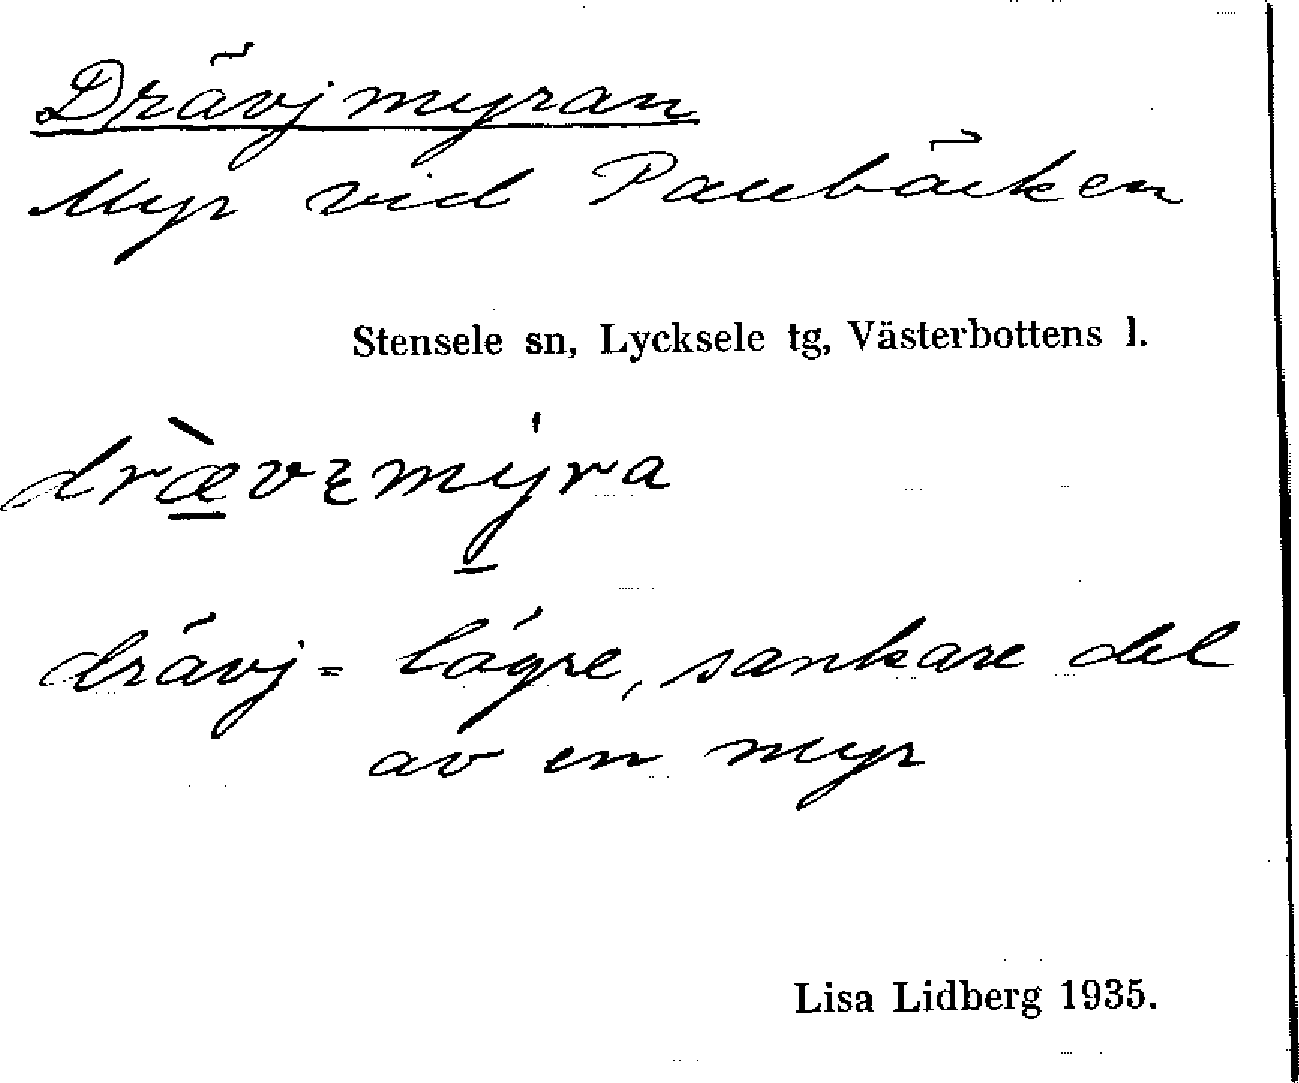 Drävjmyran
Myr vid Paubäcken
Stensele sn, Lycksele tg, Västerbottens l.
dræ̀vɛmýra
drävj = lägre, sankare del
av en myr
Lisa Lidberg 1935.